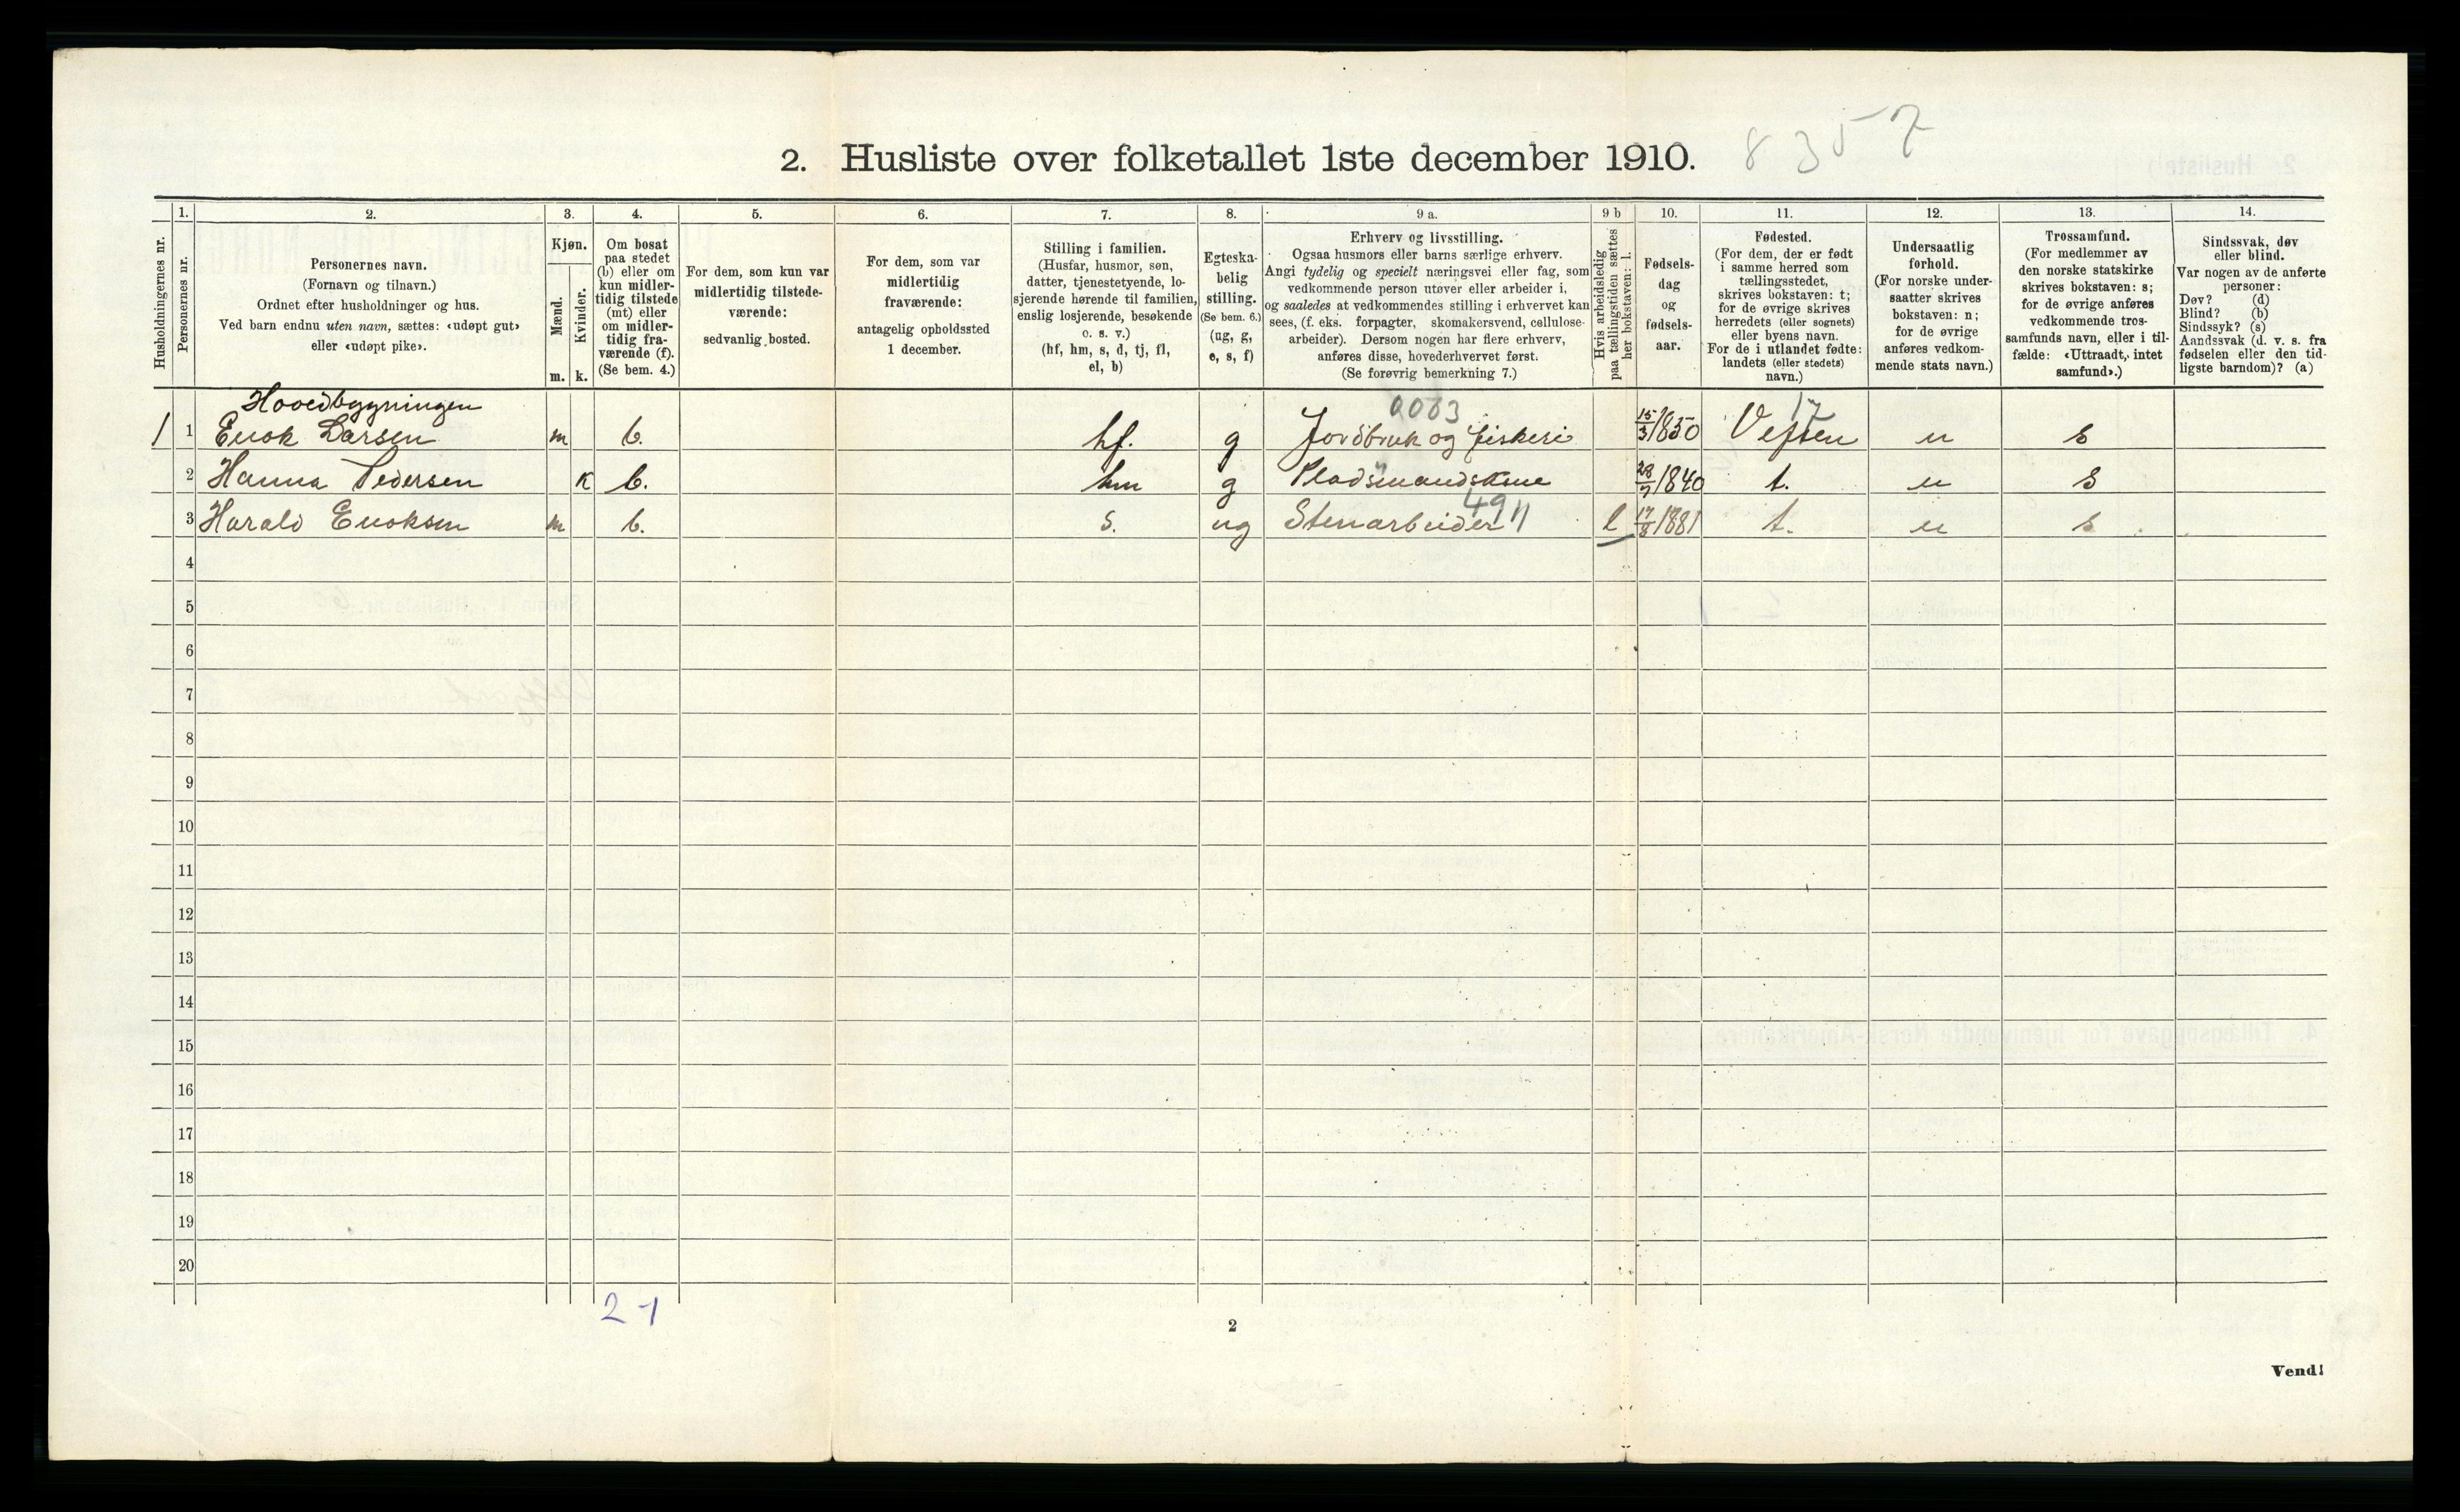 2. Husliste over folketallet 1ste december 1910. 8357
Husholdningernes nr.
1.
Personernes nr.
2.
Personernes navn.
(Fornavn og tilnavn.)
Ordnet efter husholdninger og hus.
Ved barn endnu uten navn, sættes: «udøpt gut»
eller «udøpt pike».
3.
Kjøn.
Mænd.
Kvinder.
m. k.
4.
Om bosat
paa stedet
(b) eller om
kun midler-
tidig tilstede
(mt) eller
om midler-
tidig fra-
værende (f).
(Se bem. 4.)
5.
For dem, som kun var
midlertidig tilstede-
værende:
sedvanlig bosted.
6.
For dem, som var
midlertidig
fraværende:
antagelig opholdssted
1 december.
7.
Stilling i familien.
(Husfar, husmor, søn,
datter, tjenestetyende, lo-
sjerende hørende til familien,
enslig losjerende, besøkende
o. s. v.)
(hf, hm, s, d, tj, fl,
el, b)
8.
Egteska-
belig
stilling.
(Se bem. 6.)
(ug, g,
e, s, f)
9 a.
Erhverv og livsstilling.
Ogsaa husmors eller barns særlige erhverv.
Angi tydelig og specielt næringsvei eller fag, som
vedkommende person utøver eller arbeider i,
og saaledes at vedkommendes stilling i erhvervet kan
sees, (f. eks. forpagter, skomakersvend, cellulose-
arbeider). Dersom nogen har flere erhverv,
anføres disse, hovederhvervet først.
(Se forøvrig bemerkning 7.)
9 b
Hvis arbeidsledig
paa tællingstiden sættes
her bokstaven: l.
10.
Fødsels-
dag
og
fødsels-
aar.
11.
Fødested.
(For dem, der er født
i samme herred som
tællingsstedet,
skrives bokstaven: t;
for de øvrige skrives
herredets (eller sognets)
eller byens navn.
For de i utlandet fødte:
landets (eller stedets)
navn.)
12.
Undersaatlig
forhold.
(For norske under-
saatter skrives
bokstaven: n;
for de øvrige
anføres vedkom-
mende stats navn.)
13.
Trossamfund.
(For medlemmer av
den norske statskirke
skrives bokstaven: s;
for de øvrige anføres
vedkommende tros-
samfunds navn, eller i til-
fælde: «Uttraadt, intet
samfund».)
14.
Sindssvak, døv
eller blind.
Var nogen av de anførte
personer:
Døv? (d)
Blind? (b)
Sindssyk? (s)
Aandssvak (d. v. s. fra
fødselen eller den tid-
ligste barndom)? (a)
Hovedbygningen 17
1 1 Enok Larsen m b. hf. g Jordbruk og fiskeri 15/3 1850 Vefsen n s
2 Hanna Pedersen k b. hm g Pladsmandskone 28/7 1840 t. n s
3 Harald Enoksen m b. s. ug Stenarbeider l 17/8 1881 t. n s
4
5
6
7
8
9
10
11
12
13
14
15
16
17
18
19
20
2-1
2
Vend!